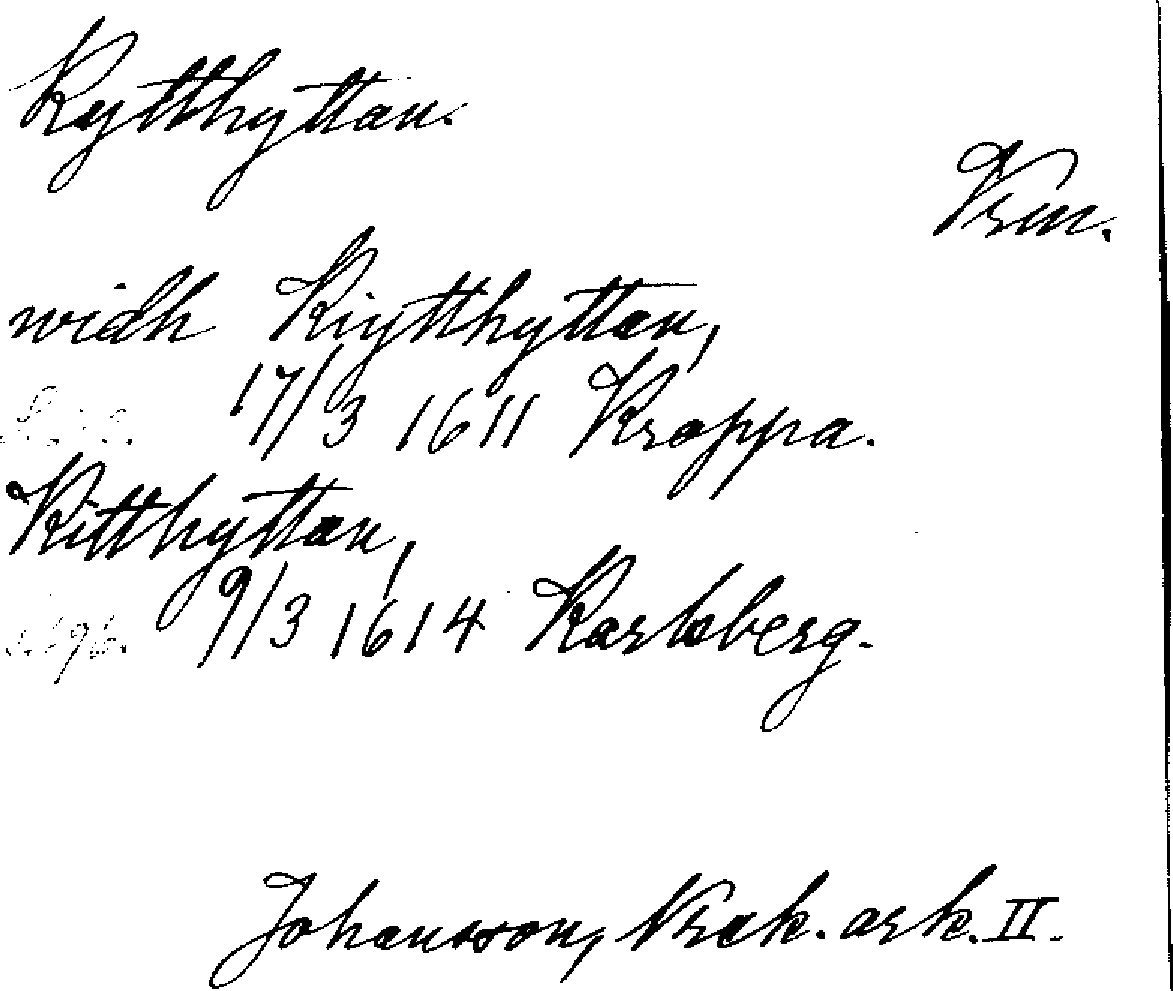 Kytthyttan.
Vrm.
widh Kiytthyttan,
17/3 1611 Kroppa.
Kitthyttan,
9/3 1614 Karlsberg.
Johansson, Nrak. ark. II.